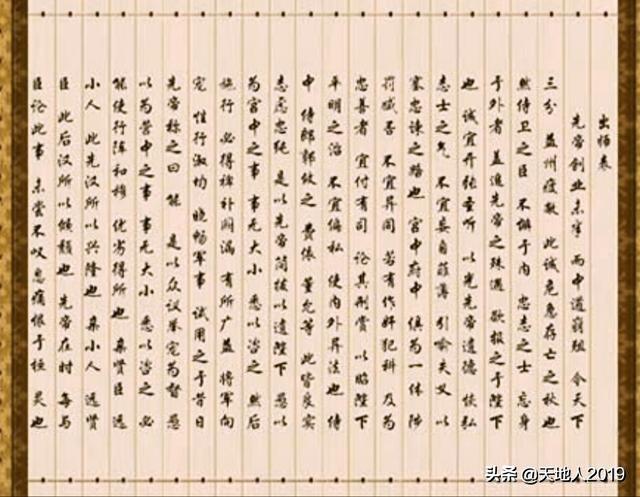 出师表
先帝创业未半 而中道崩殂 今天下
三分 益州疲敝 此诚危急存亡之秋也
然侍卫之臣 不懈于内 忠志之士 忘身
于外者 盖追先帝之殊遇 欲报之于陛下
也 诚宜开张圣听 以光先帝遗德 恢弘
志士之气 不宜妄自菲薄 引喻失义 以
塞忠谏之路也 宫中府中 俱为一体 陟
罚臧否 不宜异同 若有作奸犯科 及为
忠善者 宜付有司 论其刑赏 以昭陛下
平明之治 不宜偏私 使内外异法也 侍
中 侍郎郭攸之 费祎 董允等 此皆良实
志虑忠纯 是以先帝简拔以遗陛下 愚以
为宫中之事 事无大小 悉以咨之 然后
施行 必得裨补阙漏 有所广益 将军向
宠 性行淑均 晓畅军事 试用之于昔日
先帝称之曰 能 是以众议举宠为督 愚
以为营中之事 事无大小 悉以咨之 必
能使行阵和穆 优劣得所也 亲贤臣 远
小人 此先汉所以兴隆也 亲小人 远贤
臣 此后汉所以倾颓也 先帝在时 每与
臣论此事 未尝不叹息痛恨于桓 灵也
头条 @天地人2019